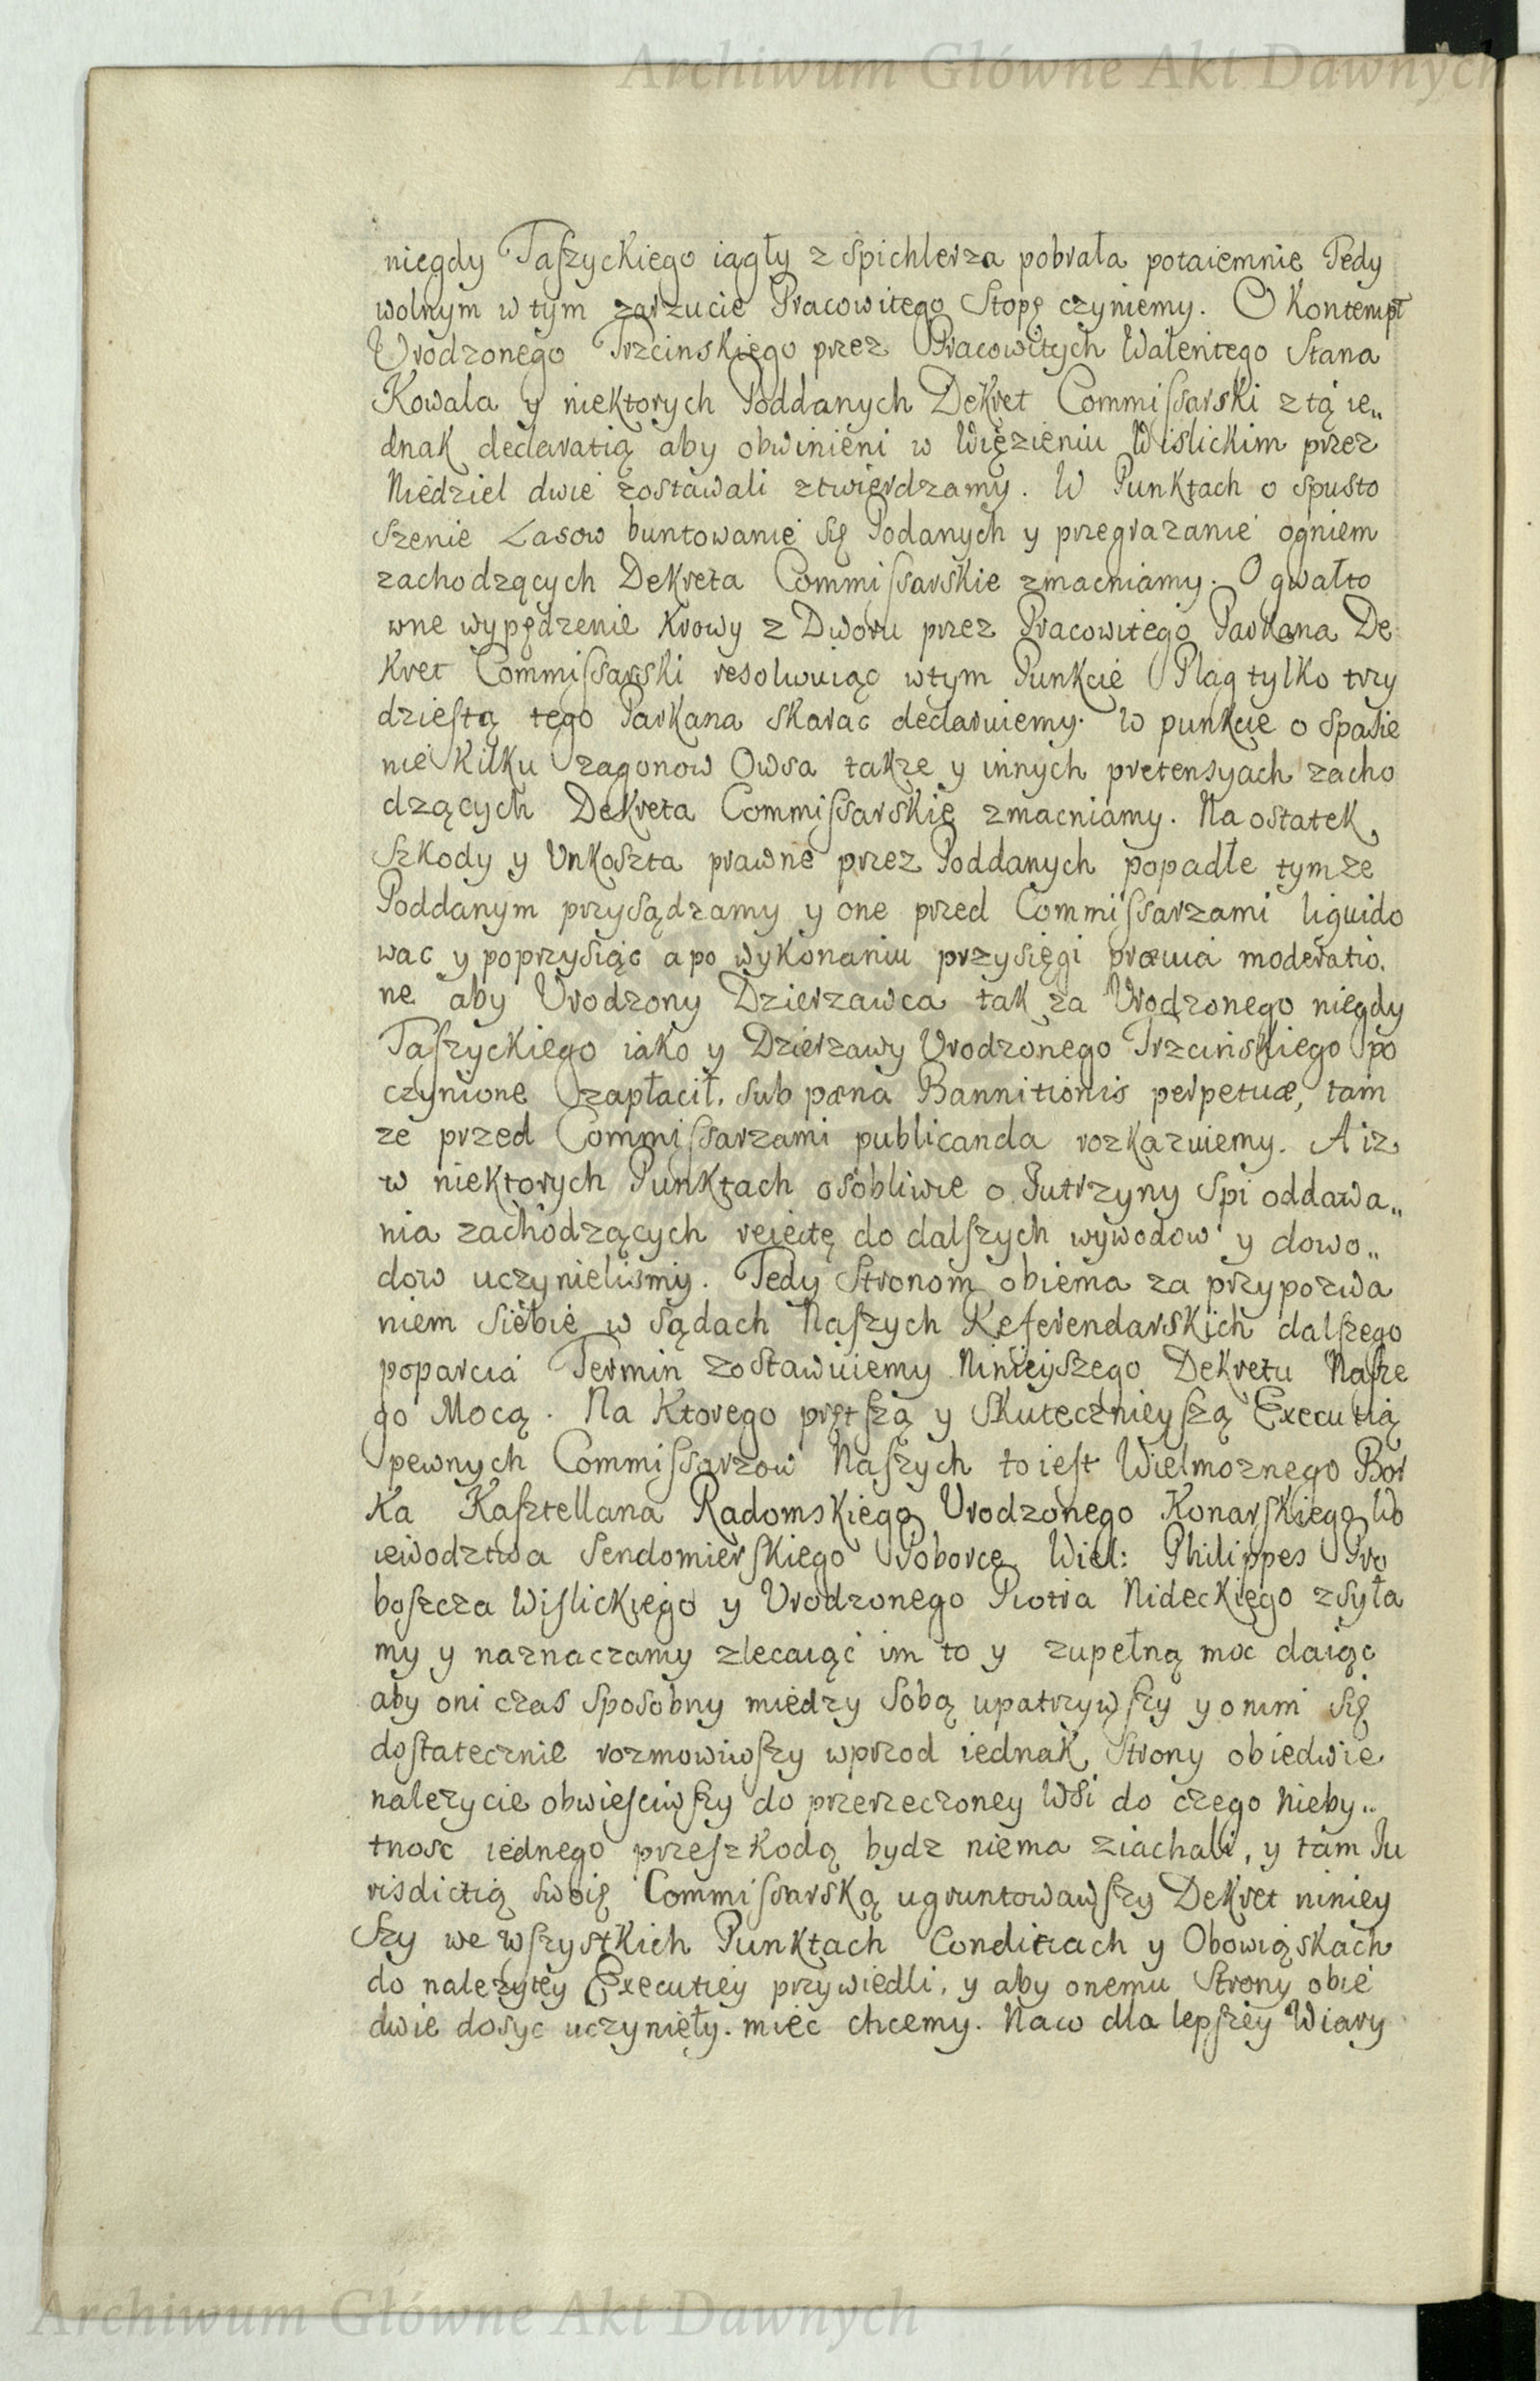 Archiwum Główne Akt Dawnych
niegdy Taszyckiego iągły z Spichlerza pobrała potaiemnie Tedy
wolnym w tym zarzucie Pracowitego Stopę czyniemy. O Kontempt
Vrodzonego Trzcinskiego przez Pracowitych Walentego Stana
Kowala y niektorych Poddanych Dekret Commissarski z tą ie„
dnak declaratią aby obwinieni w Więzieniu Wislickim przez
Niedziel dwie zostawali ztwierdzamy. W Punktach o spusto
szenie Lasow buntowanie się Podanych y przegrazanie ogniem
zachodzących Dekreta Commissarskie zmacniamy. O gwałto
wne wypędzenie Krowy z Dworu przez Pracowitego Parkana De
kret Commissarski resolwuiąc w tym Punkcie Plag tylko trzy
dziestą tego Parkana skarac declaruiemy. W punkcie o Spasie
nie Kilku zagonow Owsa takze y innych pretensyach zacho
dzących Dekreta Commissarskie zmacniamy. Na ostatek
Szkody y Unkoszta prawne przez Poddanych popadłe tymze
Poddanym przysądzamy y one przed Commissarzami liquido
wac y poprzysiąc a po wykonaniu przysięgi prævia moderatio.
ne aby Vrodzony Dzierzawca tak za Vrodzonego niegdy
Taszyckiego iako y Dzierzawy Vrodzonego Trzcinskiego po
czynione zapłacił. sub pæna Bannitionis perpetuæ, tam
ze przed Commissarzami publicanda rozkazuiemy. A iz
w niektorych Punktach osobliwie o Jutrzyny Spi oddawa„
nia zachodzących reiectę do dalszych wywodow y dowo„
dow uczynielismy. Tedy Stronom obiema za przypozwa
niem siebie w Sądach Naszych Referendarskich dalszego
poparcia Termin zostawuiemy Ninieyszego Dekretu Nasze
go Mocą. Na Ktorego prętszą y Skutecznieyszą Executią
pewnych Commissarzow Naszych to iest Wielmoznego Bor
ka Kasztellana Radomskiego Vrodzonego Konarskiego Wo
iewodztwa Sendomierskiego Poborcę Wiel: Philippes Pro
boszcza Wislickiego y Vrodzonego Piotra Nideckiego zsyła
my y naznaczamy zlecaiąc im to y zupełną moc daiąc
aby oni czas Sposobny miedzy Sobą upatrzywszy y o nim się
dostatecznie rozmowiwszy wprzod iednak Strony obiedwie
nalezycie obwiesciwszy do przerzeczoney Wsi do czego Nieby„
tnosc iednego przeszkodą bydz niema ziachali, y tam Ju
risdictią swoię Commissarską ugruntowawszy Dekret niniey
szy we wszystkich Punktach Conditiach y Obowiąskach
do nalezytey Executiey przywiedli, y aby onemu Strony obie
dwie dosyc uczynieły. miec chcemy. Na co dla lepszey Wiary
Archiwum Główne Akt Dawnych